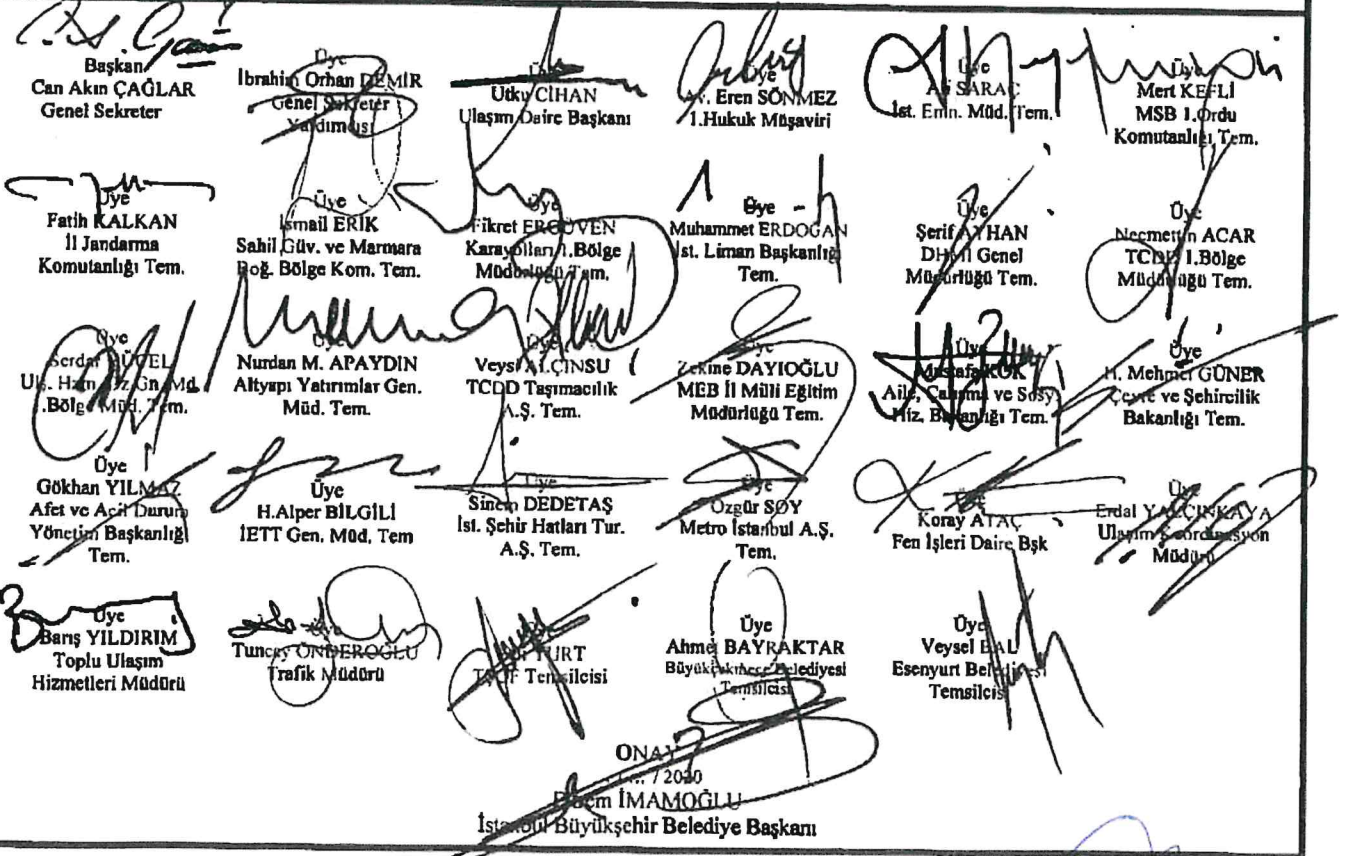 Başkan
Can Akın ÇAĞLAR
Genel Sekreter
Üye
İbrahim Orhan DEMİR
Genel Sekreter
Yardımcısı
Üye
Utku CİHAN
Ulaşım Daire Başkanı
Üye
Av. Eren SÖNMEZ
1.Hukuk Müşaviri
Üye
Ali SARAÇ
İst. Emn. Müd. Tem.
Üye
Mert KEFLİ
MSB 1.Ordu
Komutanlığı Tem.
Üye
Fatih KALKAN
İl Jandarma
Komutanlığı Tem.
Üye
İsmail ERİK
Sahil Güv. ve Marmara
Boğ. Bölge Kom. Tem.
Üye
Fikret ERGÜVEN
Karayolları 1.Bölge
Müdürlüğü Tem.
Üye
Muhammet ERDOĞAN
İst. Liman Başkanlığı
Tem.
Üye
Şerif AYHAN
DHMİ Genel
Müdürlüğü Tem.
Üye
Necmettin ACAR
TCDD 1.Bölge
Müdürlüğü Tem.
Üye
Serdar
Ulş. Hizm. Gn. Md.
1.Bölge Müd. Tem.
Üye
Nurdan M. APAYDIN
Altyapı Yatırımlar Gen.
Müd. Tem.
Üye
Veysi ALÇINSU
TCDD Taşımacılık
A.Ş. Tem.
Üye
Zekine DAYIOĞLU
MEB İl Milli Eğitim
Müdürlüğü Tem.
Üye
Mustafa KÖK
Aile, Çalışma ve Sosy.
Hiz. Bakanlığı Tem.
Üye
H. Mehmet GÜNER
Çevre ve Şehircilik
Bakanlığı Tem.
Üye
Gökhan YILMAZ
Afet ve Acil Durum
Yönetim Başkanlığı
Tem.
Üye
H.Alper BİLGİLİ
İETT Gen. Müd. Tem
Üye
Sinem DEDETAŞ
İst. Şehir Hatları Tur.
A.Ş. Tem.
Üye
Özgür SOY
Metro İstanbul A.Ş.
Tem.
Üye
Koray ATAÇ
Fen İşleri Daire Bşk
Üye
Erdal YALÇINKAYA
Ulaşım Koordinasyon
Müdürü
Üye
Barış YILDIRIM
Toplu Ulaşım
Hizmetleri Müdürü
Üye
Tuncay ÖNDEROĞLU
Trafik Müdürü
YURT
TŞOF Temsilcisi
Üye
Ahmet BAYRAKTAR
Büyükçekmece Belediyesi
Temsilcisi
Üye
Veysel BAL
Esenyurt Belediyesi
Temsilcisi
ONAY
/ 2020
Ekrem İMAMOĞLU
İstanbul Büyükşehir Belediye Başkanı